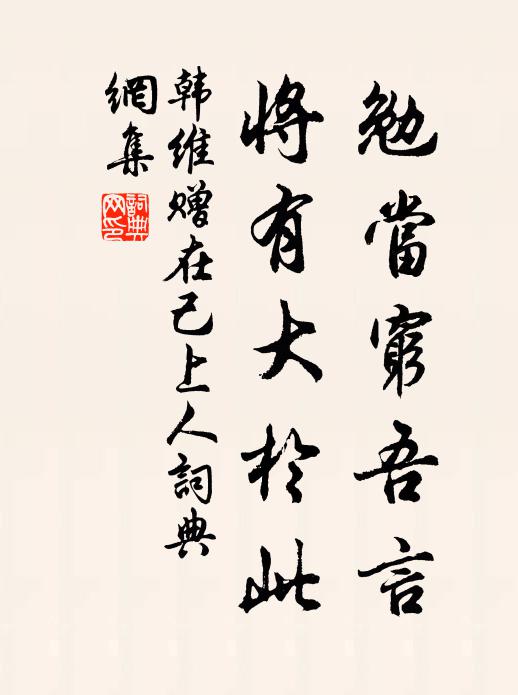 勉當窮吾言
將有大於此
韩維赠在己上人詞典
網集
詞典
网印